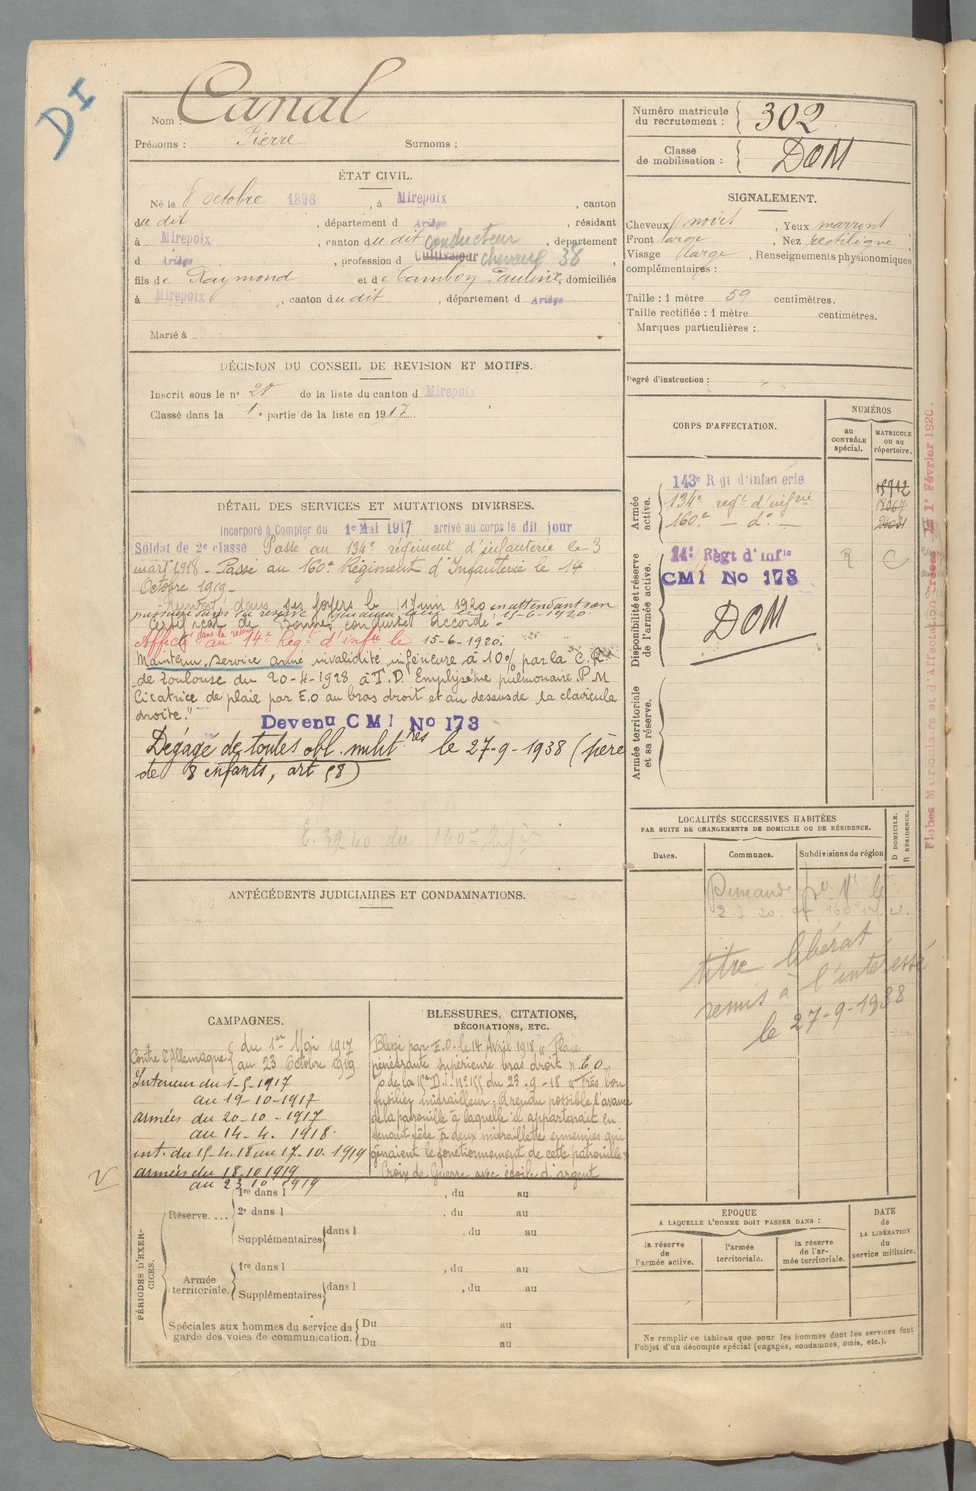 DI
Nom : Canal
Prénoms : Pierre Surnoms :
ÉTAT CIVIL.
Né le 8 octobre 1898, à Mirepoix, canton
du dit, département d Ariège, résidant
à Mirepoix, canton du dit conducteur, département
d Ariège, profession d Cultivateur chevaux 38,
fils de Raymond et de Pauline, domiciliés
à Mirepoix, canton du dit, département d Ariège
Marié à
DÉCISION DU CONSEIL DE REVISION ET MOTIFS.
Inscrit sous le n° de la liste du canton d Mirepoix
Classé dans la 1e partie de la liste en 1917
DÉTAIL DES SERVICES ET MUTATIONS DIVERSES.
Incorporé à Compter du 1e Mai 1917 arrivé au corps le dit jour
Soldat de 2e classe Passé au 134e régiment d'infanterie le 3
mars 1918 - Passé au 160e Régiment d'Infanterie le 14
Octobre 1919 -
dans ses foyers le 1 juin 1920 en attendant son
passage dans la réserve 15-6-1920
Certificat de Bonne conduite accordé.
Affecté dans la réserve au 14e Régt d'infie le 15-6-1920.
Maintenu, service armé invalidité inférieure à 10% par la C. R.
de Toulouse du 20-4-1928 à T.D. Emphysème pulmonaire. P.M
Cicatrice de plaie par E.O au bras droit et au dessus de la clavicule
droite."
Devenu CMI No 173
Dégagé de toutes obl. milit res le 27-9-1938 (père
de 8 enfants, art 58)
ANTÉCÉDENTS JUDICIAIRES ET CONDAMNATIONS.
CAMPAGNES.
Contre l'Allemagne { du 1er Mai 1917
au 23 Octobre 1919
Intérieur du 1-5-1917
au 19-10-1917
armées du 20-10-1917
au 14-4-1918.
int. du 15-4-18 au 17-10-1919
armées du 18.10.1919
au 23 10 1919
BLESSURES, CITATIONS,
DÉCORATIONS, ETC.
Blessé par E.O. le 14 Avril 1918 "Plaie
pénétrante supérieure bras droit" E.O.
de la 15e D.I. n° 155 du 23-9-18 "Très bon
fusilier mitrailleur, a rendu possible l'avance
de la patrouille à laquelle il appartenait en
tenant tête à deux mitraillettes ennemies qui
gênaient le fonctionnement de cette patrouille"
Croix de Guerre avec étoile d'argent
PÉRIODES D'EXERCICES.
Réserve.... 1re dans l , du au
2e dans l , du au
Supplémentaires dans l , du au
Armée territoriale. 1re dans l , du au
Supplémentaires dans l , du au
Spéciales aux hommes du service de garde des voies de communication. Du au
Du au
Numéro matricule du recrutement : 302
Classe de mobilisation : DOM
SIGNALEMENT.
Cheveux noirs, Yeux marrons
Front large, Nez rectiligne,
Visage large, Renseignements physionomiques
complémentaires :
Taille : 1 mètre 59 centimètres.
Taille rectifiée : 1 mètre centimètres.
Marques particulières :
Degré d'instruction :
CORPS D'AFFECTATION.
NUMÉROS
au CONTRÔLE spécial.
MATRICULE ou au répertoire.
Armée active.
143e Rgt d'infanterie
134e regt d'infrie
160e - do -
Disponibilité et réserve de l'armée active.
14e Règt d'Infie R C
CMI No 173
DOM
Armée territoriale et sa réserve.
LOCALITÉS SUCCESSIVES HABITÉES
PAR SUITE DE CHANGEMENTS DE DOMICILE OU DE RÉSIDENCE.
Dates. Communes. Subdivisions de région
D DOMICILE.
R RÉSIDENCE.
titre libérat
remis à l'intéressé
le 27-9-1938
EPOQUE
A LAQUELLE L'HOMME DOIT PASSER DANS :
la réserve de l'armée active.
l'armée territoriale.
la réserve de l'armée territoriale.
DATE de LA LIBÉRATION du service militaire.
Ne remplir ce tableau que pour les hommes dont les services font
l'objet d'un décompte spécial (engagés, condamnés, omis, etc.).
Fiches Matriculaire et d'Affectation le 1er Février 1920.